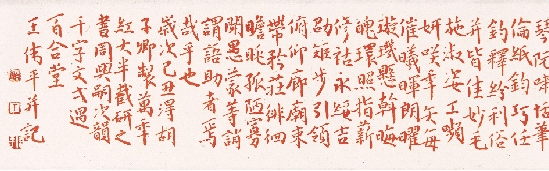 琴阮嘯恬筆
倫紙鈞巧任
釣釋紛利俗
并皆佳妙毛
施淑姿工顰
妍咲年矢每
催曦暉朗曜
璇璣懸斡晦
魄環照指薪
修祜永綏吉
劭矩步引領
俯仰廊廟束
帶矜莊徘徊
瞻眺孤陋寡
聞愚蒙等誚
謂語助者焉
哉乎也
歲次己丑得胡
子卿製萬年
紅大半截研之
書周興嗣次韻
千字文弌過
百合堂
王偉平并記